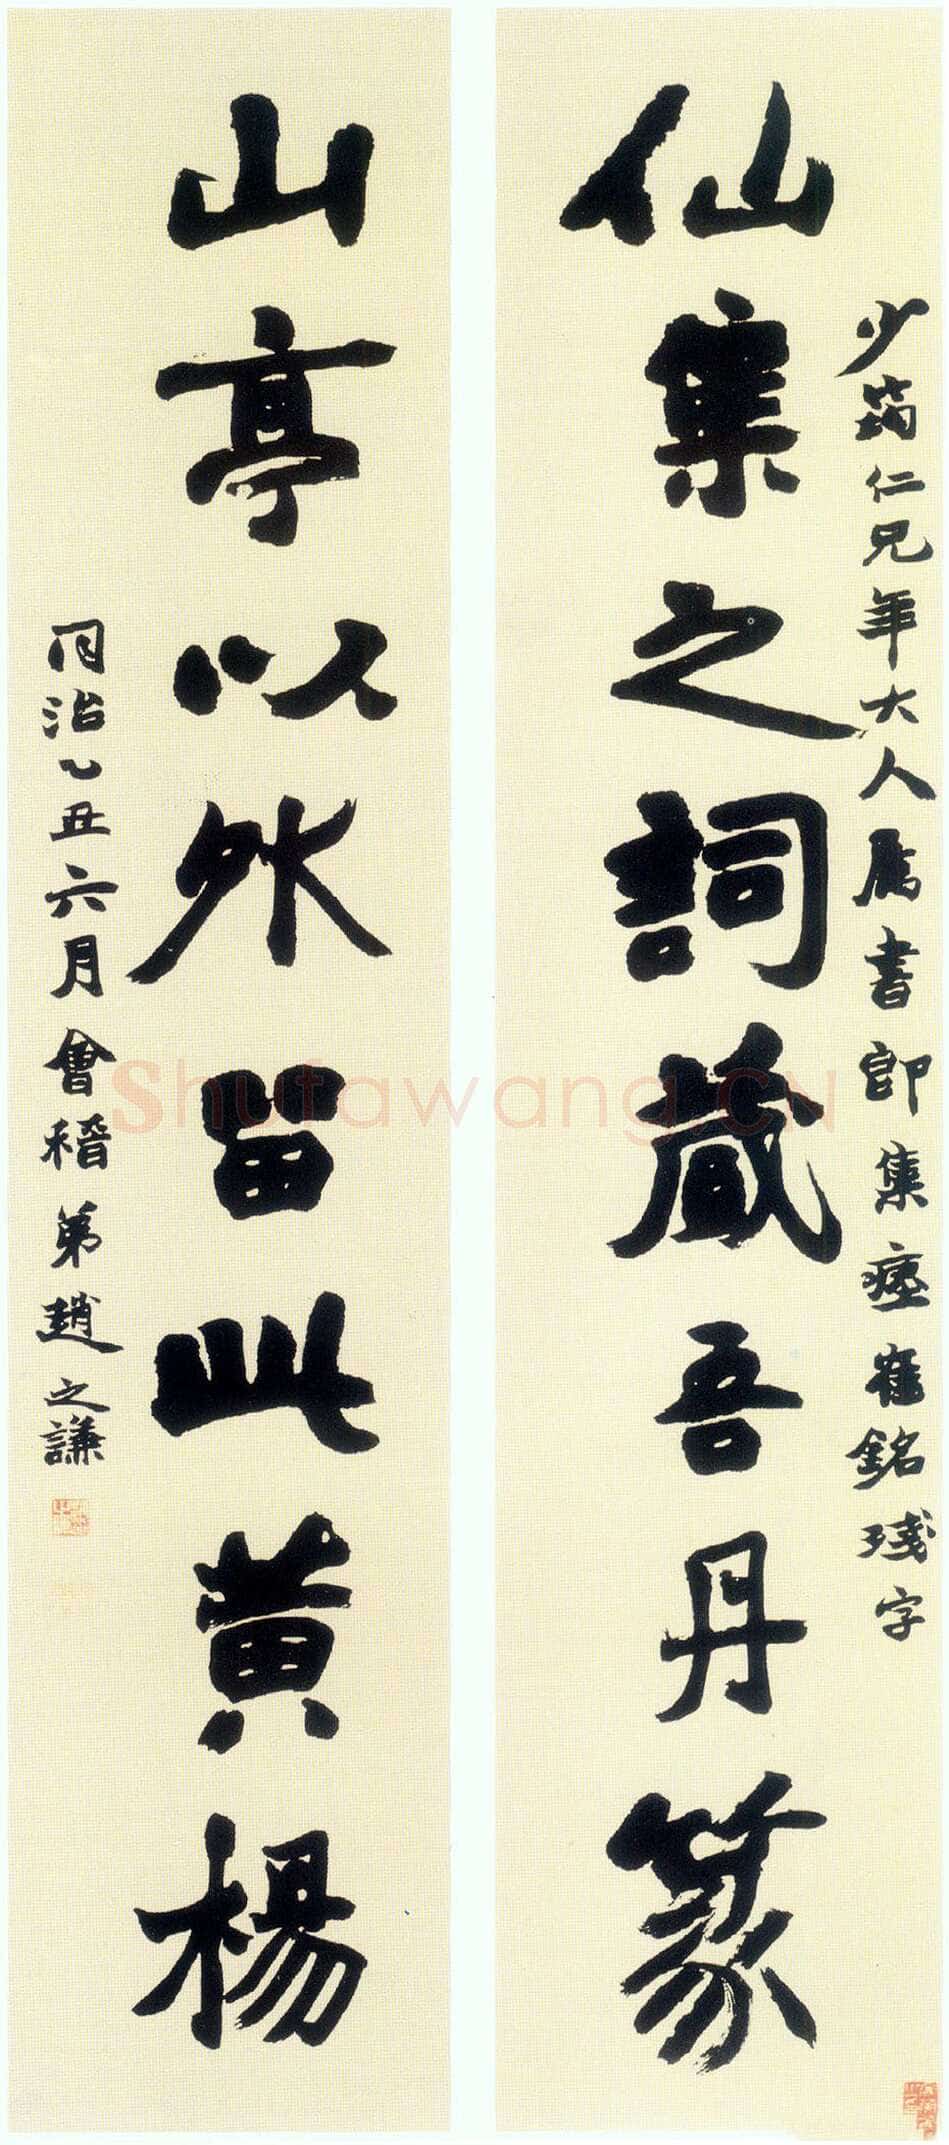 少筠仁兄年大人属書即集瘞雀銘殘字
仙集之詞藏吾丹篆
山亭以外留此黃楊
同治乙丑六月會稽弟趙之謙
Shufawang.CN